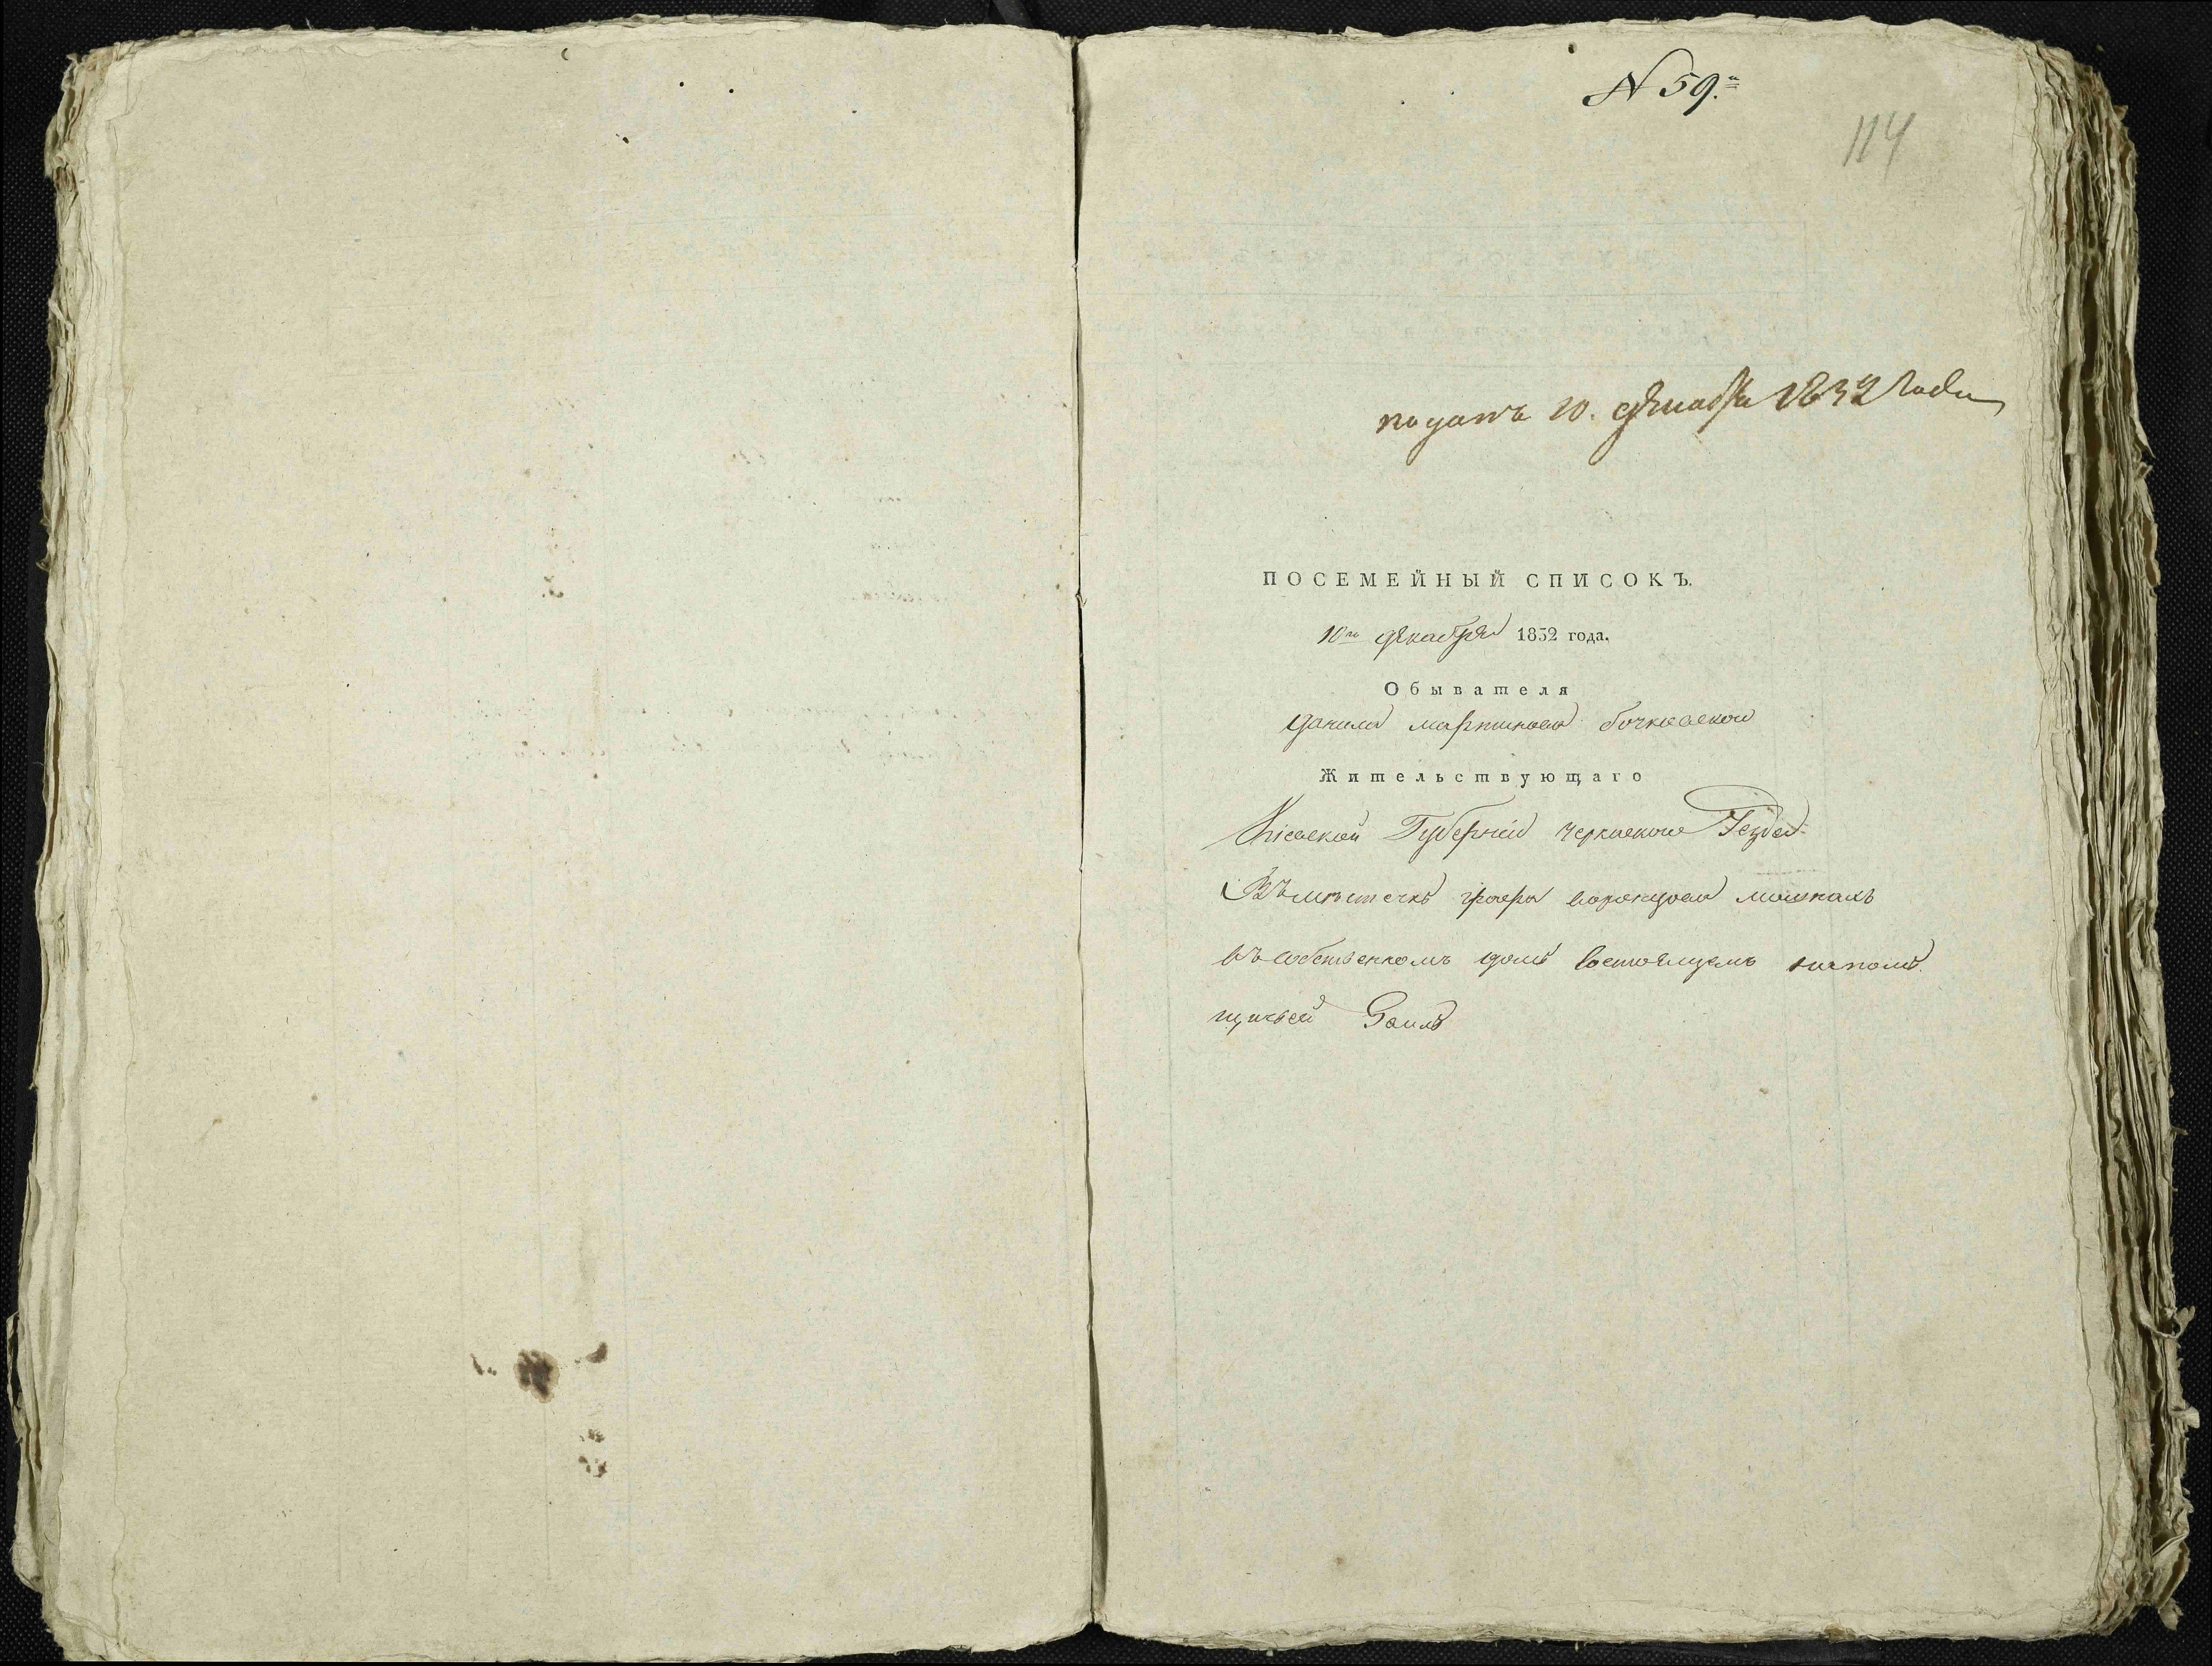 N 59.
114
поданъ 10. декабря 1832 года
ПОСЕМЕЙНЫЙ СПИСОКЪ.
10го декабря 1832 года.
Обывателя
данила мартинова бочковскои
Жительствующаго
Кіевской Губерніи черкаскои Уезда
Въ местечке графа воронцова мошнахъ
въ собственномъ доме состоящемъ на поме
щичьей Земле